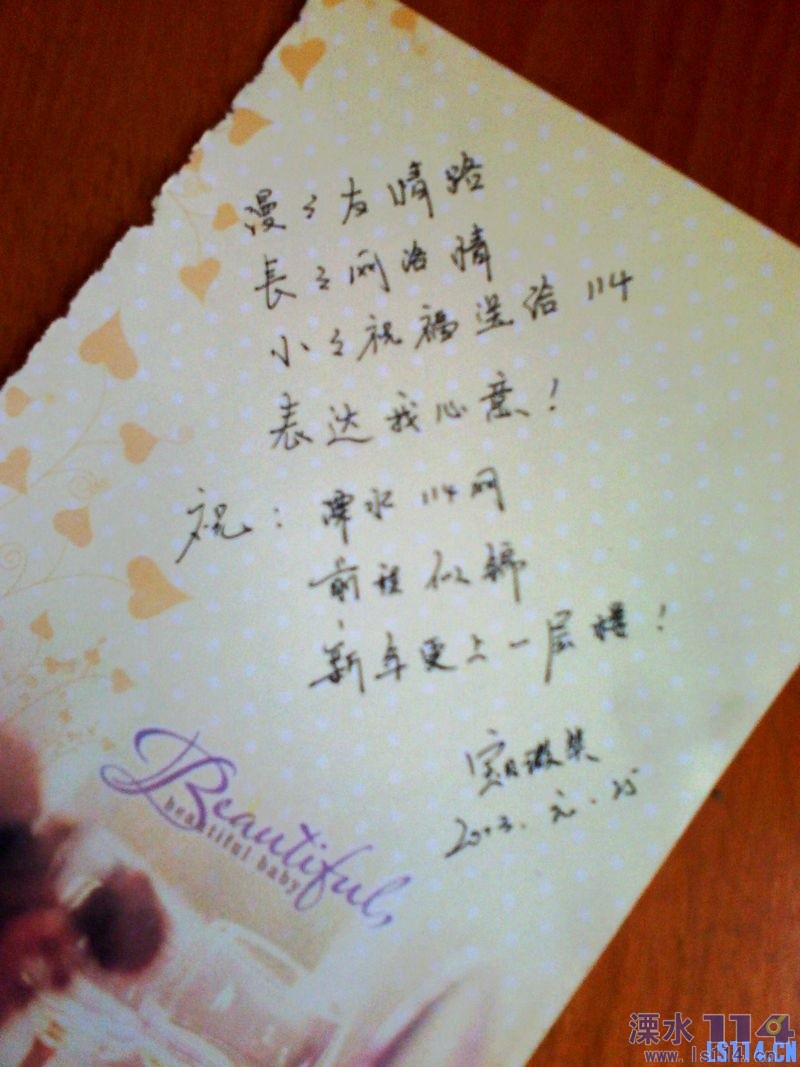 漫々友情路
長々网洛情
小々祝福送给114
表达我心意!
祝:溧水114网
前程似锦
新年更上一层楼!
2013.元.25
Beautiful,
beautiful baby
溧水114
www.ls114.cn
LS114.CN